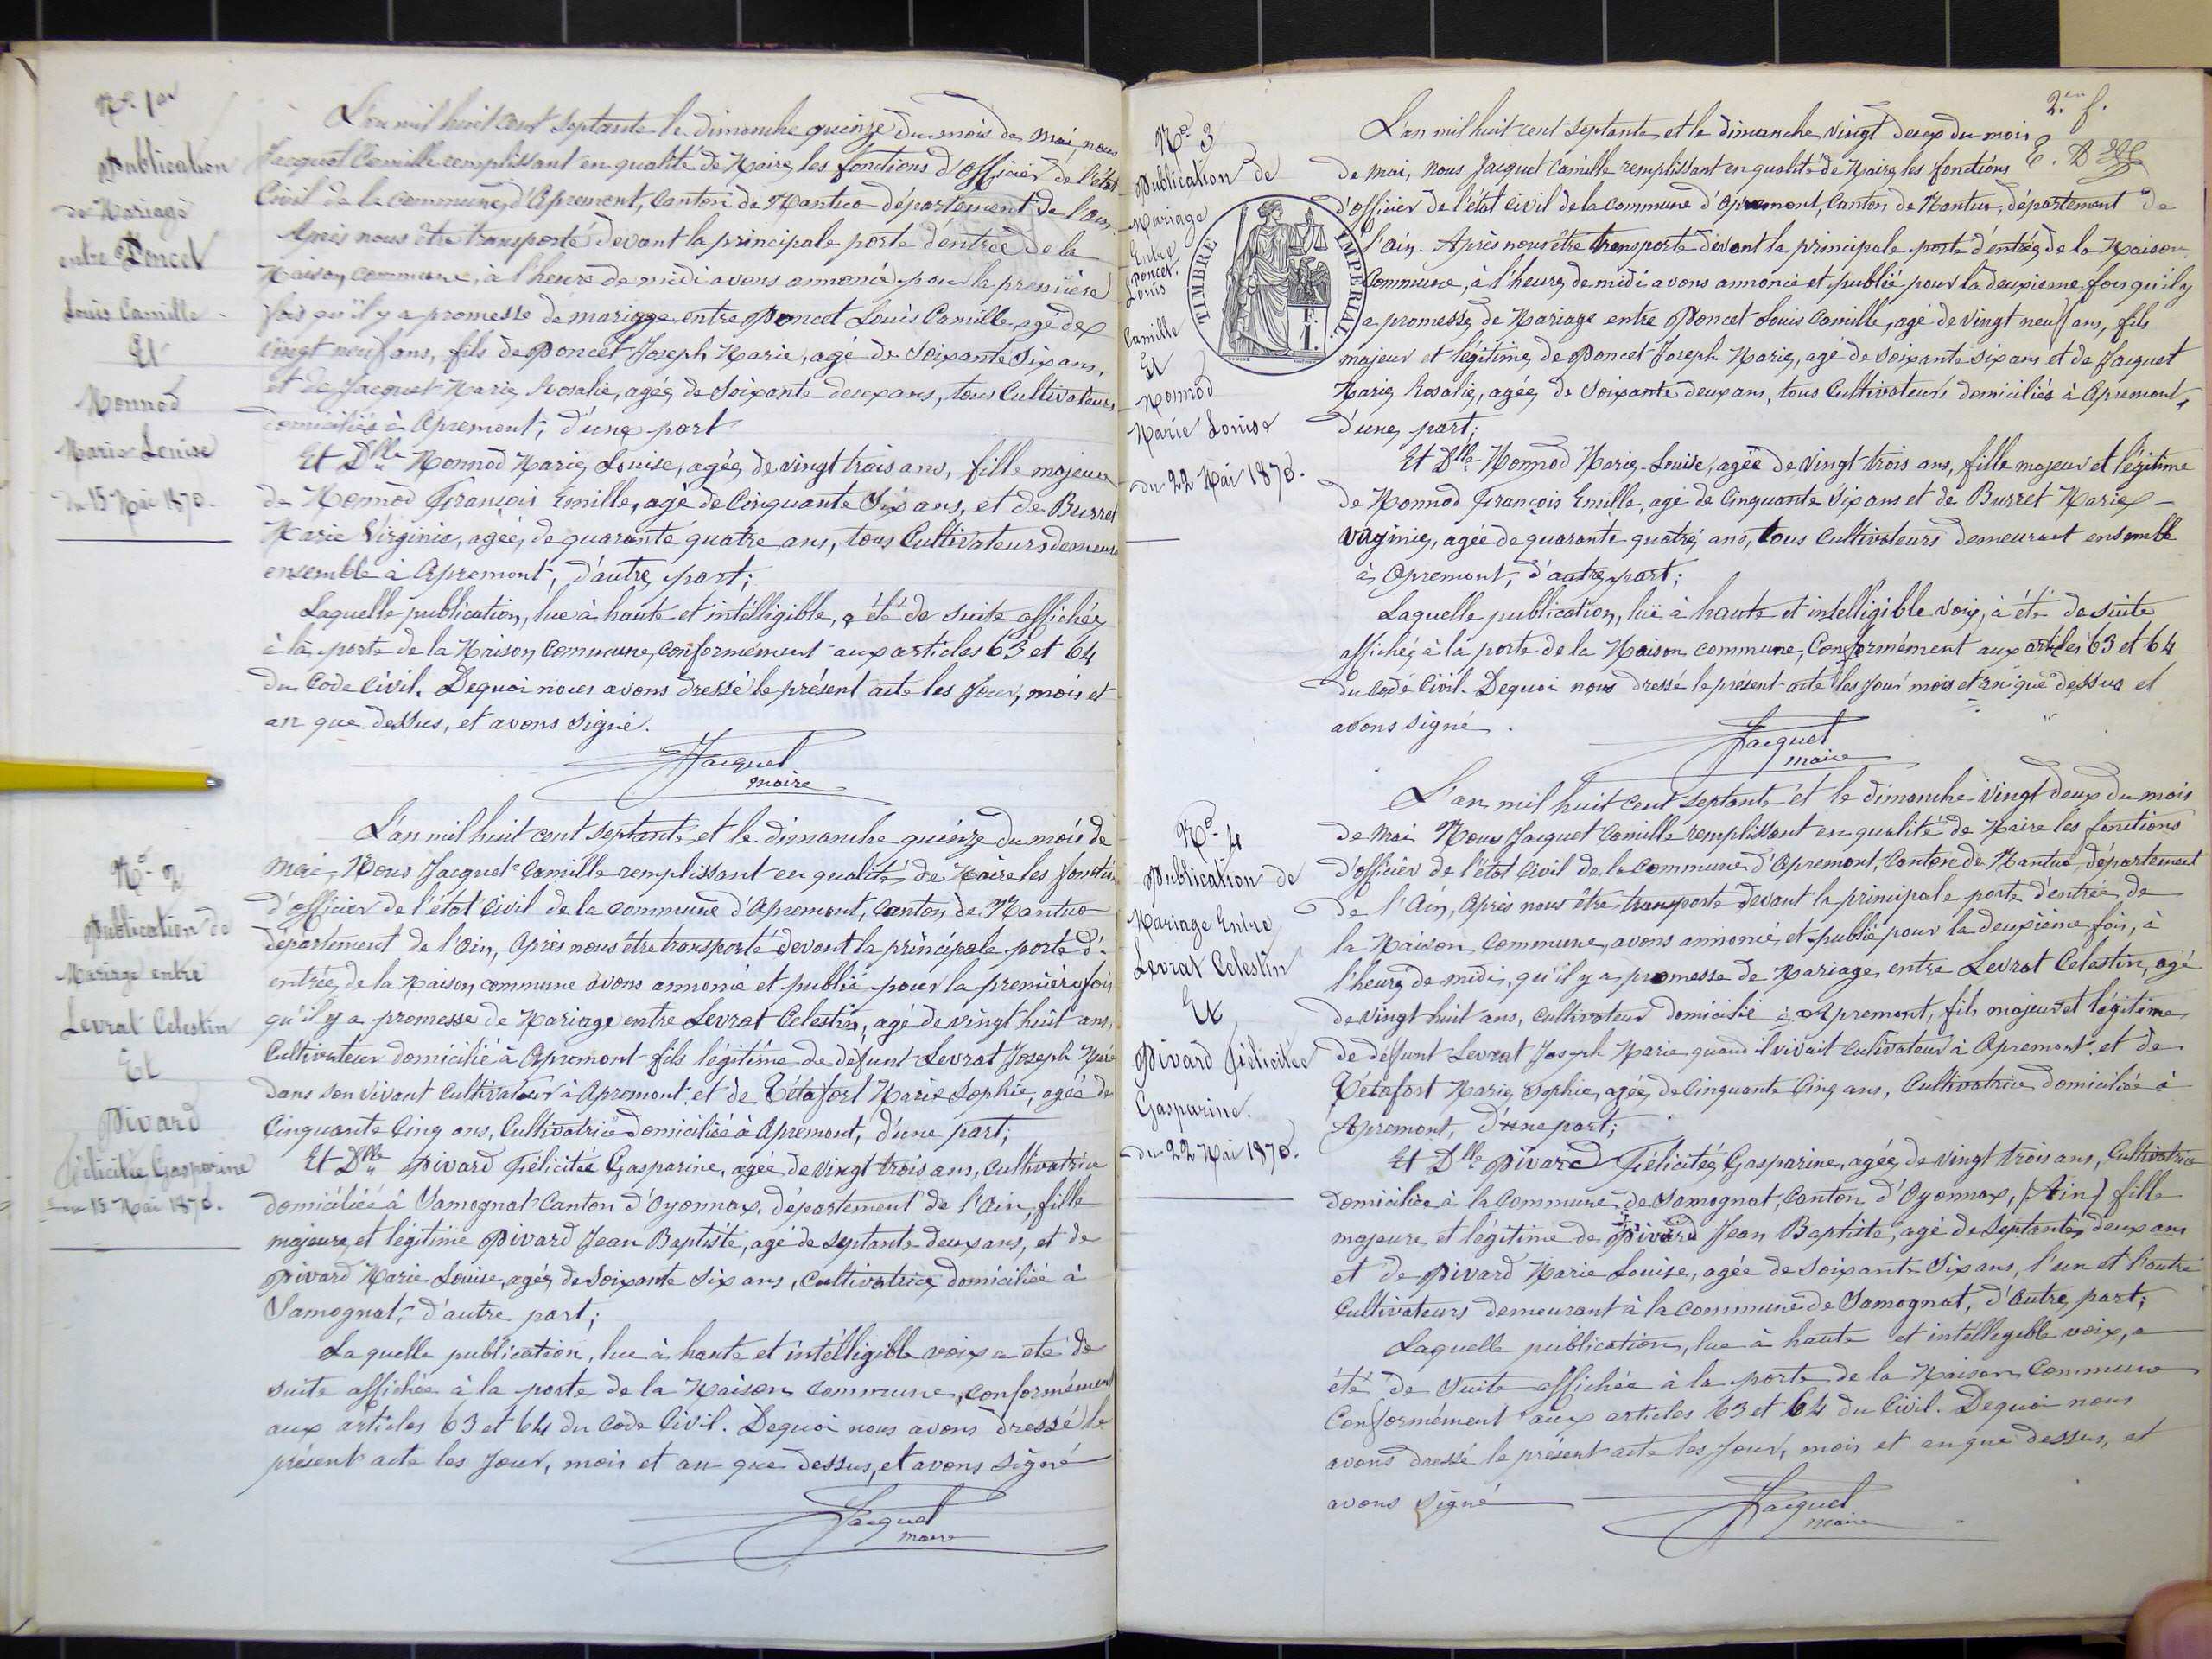 N.º 1er
Publication
de Mariage
entre Poncet
Louis Camille
Et
Monnod
Marie Louise
du 15 Mai 1870.
L'an mil huit cent septante le dimanche quinze du mois de mai, nous
Jacquet Camille remplissant en qualité de Maire, les fonctions d'officier de l'état
Civil de la commune, d'Apremont, Canton de Nantua département de l'Ain.
Après nous être transporté devant la principale porte d'entrée de la
Maison commune, à l'heure de midi avons annoncé pour la première
fois qu'il y a promesse de mariage entre Poncet Louis Camille, agé de
vingt neuf ans, fils de Poncet Joseph Marie, agé de soixante six ans,
et de Jacquet Marie Rosalie, agée, de soixante deux ans, tous Cultivateurs
domiciliés à Apremont, d'une part
Et Dlle Monnod Marie Louise, agée, de vingt trois ans, fille majeur
de Monnod François Emille, agé de Cinquante Six ans, et de Burret
Marie Virginie, agée, de quarante quatre ans, tous Cultivateurs demeure
ensemble à Apremont, d'autre part;
Laquelle publication, lue à haute et intélligible, a été de suite affichée
à la porte de la Maison Commune, conformément aux articles 63 et 64
du Code Civil. Dequoi nous avons dressé le présent acte les Jour, mois et
an que dessus, et avons signé.
Jacquet
maire
Nº 2
Publication de
Mariage entre
Levrat Celestin
Et
Pivard
Félicitée Gasparine
du 15 Mai 1870.
L'an mil huit cent septante et le dimanche quinze du mois de
mai, Nous Jacquet Camille remplissant en qualité de Maire les fonction
d'officier de l'état Civil de la commune d'Apremont, Canton de Nantua
département de l'Ain, Après nous être transporté devant la principale porte d'-
entrée, de la Maison commune avons annoncé et publié pour la première fois
qu'il y a promesse de Mariage entre Levrat Celestin, agé de vingt huit ans,
Cultivateur domicilié à Apremont fils légitime de défunt Levrat Joseph Marie
dans son vivant Cultivateur à Apremont et de Tétafort Marie Sophie, agée de
Cinquante Cinq ans, Cultivatrice domiciliée à Apremont, d'une part;
Et Dlle Pivard Félicitée Gasparine, agée de vingt trois ans, Cultivatrice
domiciliée à Samognat Canton d'Oyonnax, département de l'Ain, fille
majeure, et légitime Pivard Jean Baptiste, agé de septante deux ans, et de
Pivard Marie Louise, agée, de soixante six ans, Cultivatrice, domiciliée à
Samognat, d'autre part;
Laquelle publication, lue à haute et intélligible voix a été de
suite affichée à la porte de la Maison Commune, conformément
aux articles 63 et 64 du Code Civil. Dequoi nous avons dressé le
présent acte les Jour, mois et an que dessus, et avons signé
Jacquet
maire
2.en f.
Nº 3
Publication de
Mariage
Entre
Poncet
Louis
Camille
Et
Monnod
Marie Louise
du 22 Mai 1870.
TIMBRE IMPERIAL
F.
1.
L'an mil huit cent septante, et le dimanche vingt deux du mois
de mai, nous Jacquet Camille remplissant en qualité de Maire, les fonctions
d'officier de l'état civil de la commune d'Apremont, Canton de Nantua, département de
l'Ain. Après nous être transporté devant la principale porte d'entrée, de la Maison
Commune, à l'heure, de midi avons annoncé et publié pour la deuxieme fois qu'il y
a promesse, de Mariage entre Poncet Louis Camille, agé de vingt neuf ans, fils
majeur et légitime, de Poncet Joseph Marie, agé de soixante six ans et de Jacquet
Marie Rosalie, agée, de Soixante deux ans, tous Cultivateurs domiciliés à Apremont,
d'une, part;
Et Dlle Monnod Marie Louise, agée de vingt trois ans, fille majeur et légitime
de Monnod François Emille, agé de Cinquante Six ans et de Burret Marie -
Virginie, agée de quarante quatre, ans, tous Cultivateurs demeurant ensemble
à, Apremont, d'autre, part;
Laquelle publication, lue à haute et intelligible voix, à été de suite
affichée, à la porte de la Maison commune, Conformément aux articles 63 et 64
du Code Civil. Dequoi nous dressé le présent acte les Jour mois et an que dessus et
avons signé.
Jacquet
maire
Nº 4
Publication de
Mariage Entre
Levrat Celestin
Et
Pivard Félicitée
Gasparine.
du 22 Mai 1870.
L'an mil huit cent septante et le dimanche vingt deux du mois
de Mai Nous Jacquet Camille remplissant en qualité de Maire les fonctions
d'officier de l'état Civil de la commune d'Apremont, Canton de Nantua, département
de l'Ain, Après nous être transporté devant la principale porte d'entrée de
la Maison Commune, avons annoncé et publié pour la deuxième fois, à
l'heure, de midi, qu'il y a promesse de Mariage entre Levrat Celestin, agé
de vingt huit ans, Cultivateur domicilié à Apremont, fils majeur et légitime
de défunt Levrat Joseph Marie quand il vivait cultivateur à Apremont et de
Tétafort Marie Sophie, agée, de Cinquante Cinq ans, Cultivatrice domiciliée à
Apremont, d'une part;
Et Dlle Pivard Félicitée, Gasparine, agée, de vingt trois ans, Cultivatrice
domiciliée à la Commune de Samognat, Canton d'Oyonnax, (Ain) fille
majeure et légitime de Pivard Jean Baptiste, agé de septante, deux ans
et de Pivard Marie Louise, agée de soixante Six ans, l'un et l'autre
Cultivateurs demeurant à la commune de Samognat, d'autre, part;
Laquelle publication, lue à haute et intelligible voix, a
été de suite affichée à la porte de la Maison Commune
Conformément aux articles 63 et 64 du Civil. Dequoi nous
avons dressé le présent acte les Jour, mois et an que dessus, et
avons signé
Jacquet
maire